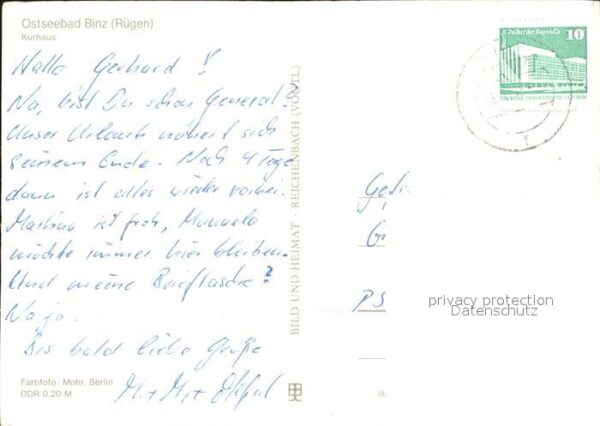 Ostseebad Binz (Rügen)
Kurhaus
Hallo Gerhard!
Na, bist Du schon General?
Unser Urlaub nähert sich
seinem Ende. Noch 4 Tage
dann ist alles wieder vorbei.
Martina ist froh, Manuela
möchte immer hier bleiben.
Und meine Brieftasche?
Na ja.
Bis bald liebe Grüße
M. + M. +
Farbfoto: Mohr, Berlin
DDR 0,20 M
BILD UND HEIMAT · REICHENBACH (VOGTL)
III.
10
Palast der Republik
DDR
Gefr.
G
PS
privacy protection
Datenschutz